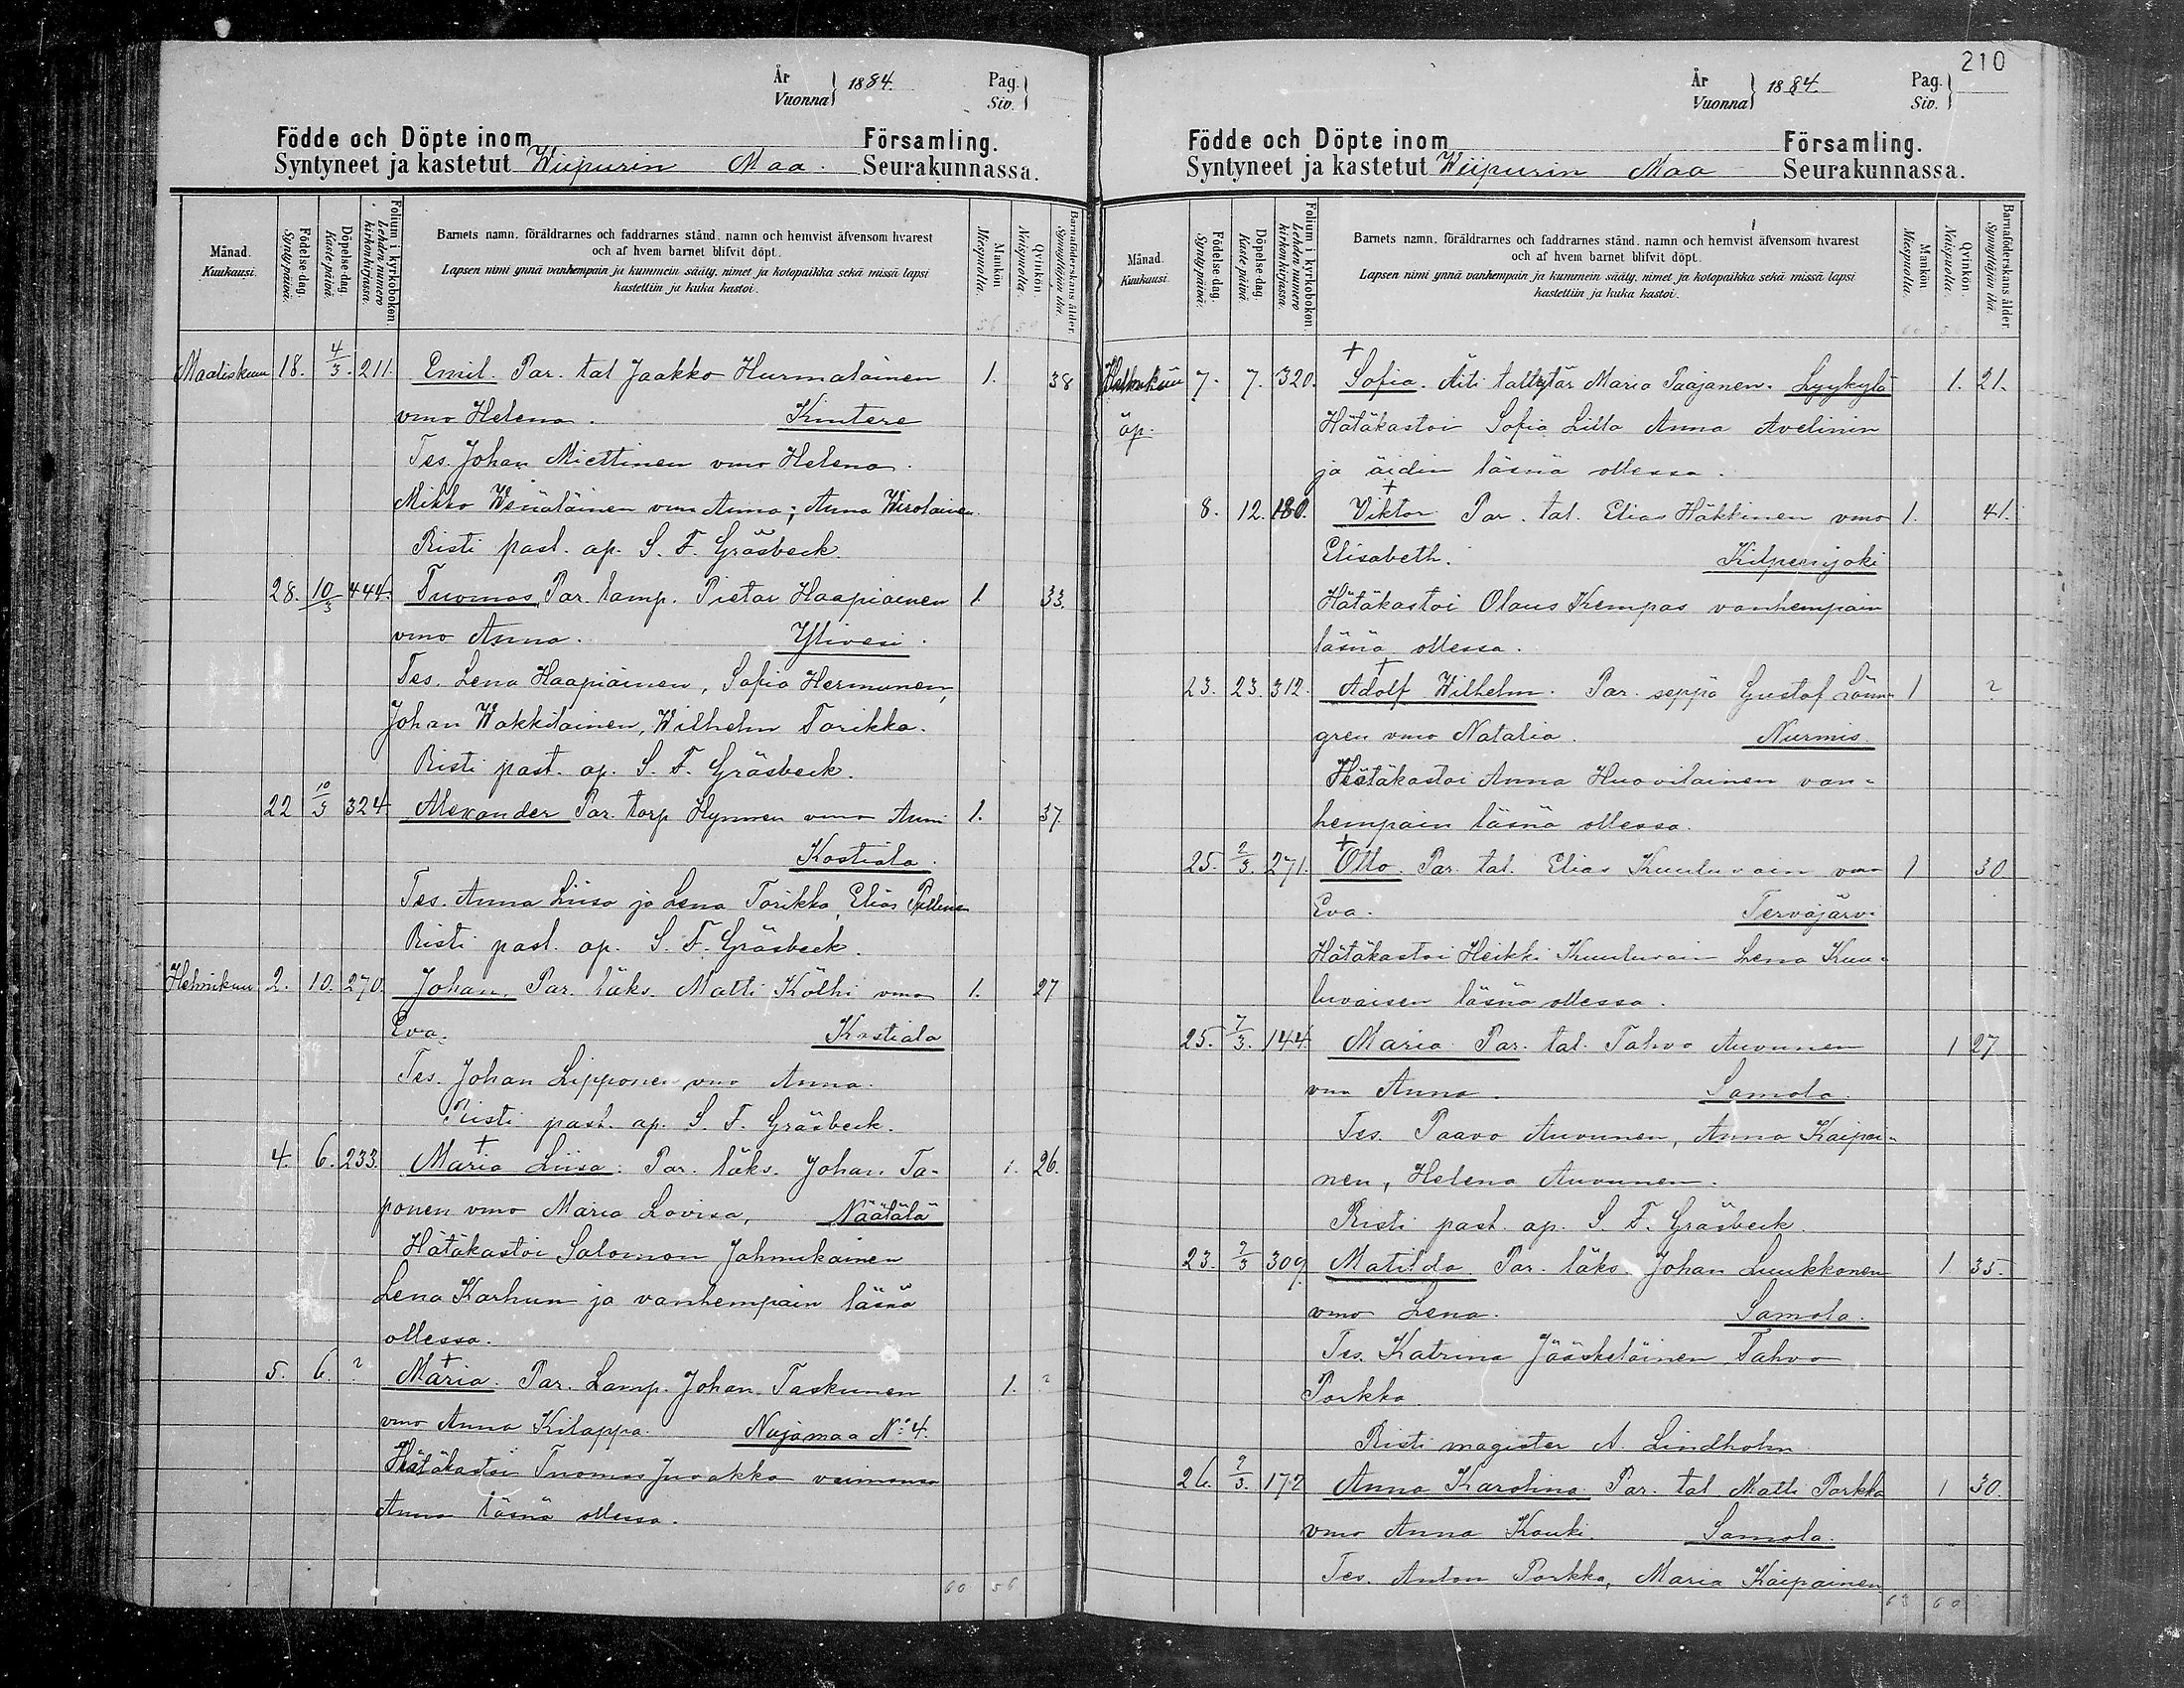 År
Vuonna
1884.
Pag.
Siv.
Födde och Döpte inom
Församling.
Syntyneet ja kastetut Wiipurin Maa. Seurakunnassa.
Månad.
Kuukausi.
Födelse-dag.
Synty-päivä.
Döpelse-dag.
Kaste-päivä.
Folium i kyrkoboken.
Lehden numero kirkonkirjassa.
Barnets namn, föräldrarnes och faddrarnes stånd, namn och hemvist äfvensom hvarest
och af hvem barnet blifvit döpt.
Lapsen nimi ynnä vanhempain ja kummein sääty, nimet ja kotopaikka sekä missä lapsi
kastettiin ja kuka kastoi.
Mankön.
Miespuolia.
Qvinkön.
Naispuolia.
Barnaföderskans ålder.
Synnyttäjän ikä.
Maaliskuu 18. 4/3. 211. Emil. Par. tal Jaakko Hurmalainen 1. 38
vmo Helena. Kintere
Tes. Johan Miettinen vmo Helena.
Mikko Wenäläinen vmo Anna; Anna Wirolainen.
Risti past. ap. S. F. Gräsbeck.
28. 10/3 444. Tuomas, Par. lamp. Pietar Haapiainen 1 33.
vmo Anna. Ylivesi.
Tes. Lena Haapiainen, Sofia Hermunen,
Johan Wakkilainen, Wilhelm Torikka.
Risti past. ap. S. F. Gräsbeck.
22 10/3 324 Alexander Par. torp Hynnen vmo Anni 1. 37
Kostiala.
Tes. Anna Liisa ja Lena Torikka, Elias Pullinen
Risti past. ap. S. F. Gräsbeck.
Helmikuu 2. 10. 270. Johan, Par. läks. Matti Kölhi vmo 1. 27
Eva. Kostiala
Tes. Johan Lipponen vmo Anna.
Risti past. ap. S. F. Gräsbeck.
4. 6. 233. + Maria Liisa. Par. läks. Johan Ta- 1. 26.
ponen vmo Maria Lovisa, Näätälä
Hätäkastoi Salomon Johnukainen
Lena Karhun ja vanhempain läsnä
ollessa.
5. 6. ? + Maria. Par. Lamp. Johan Taskunen 1. ?
vmo Anna Kilappa. Nujamaa No 4.
Hätäkastoi Tuomas Juvakka vaimonsa
Anna läsnä ollessa.
60 56
210
År
Vuonna
1884.
Pag.
Siv.
Födde och Döpte inom
Församling.
Syntyneet ja kastetut Wiipurin Maa Seurakunnassa.
Månad.
Kuukausi.
Födelse-dag.
Synty-päivä.
Döpelse-dag.
Kaste-päivä.
Folium i kyrkoboken.
Lehden numero kirkonkirjassa.
Barnets namn, föräldrarnes och faddrarnes stånd, namn och hemvist äfvensom hvarest
och af hvem barnet blifvit döpt.
Lapsen nimi ynnä vanhempain ja kummein sääty, nimet ja kotopaikka sekä missä lapsi
kastettiin ja kuka kastoi.
Mankön.
Miespuolia.
Qvinkön.
Naispuolia.
Barnaföderskans ålder.
Synnyttäjän ikä.
Helmikuu 7. 7. 320. + Sofia. Äiti taltytär Maria Paajanen. Lyykylä 1. 21.
äp. Hätäkastoi Sofia Lilla Anna Avelinin
ja äidin läsnä ollessa.
8. 12. 180. + Viktor Par. tal. Elias Häkkinen vmo 1. 41.
Elisabeth. Kilpeenjoki
Hätäkastoi Olaus Kempas vanhempain
läsnä ollessa.
23. 23. 312. + Adolf Wilhelm. Par. seppä Gustaf Lönn- 1 ?
gren vmo Natalia. Nurmis.
Hätäkastoi Anna Huovilainen van-
hempain läsnä ollessa.
25. 2/3. 271. + Otto. Par. tal. Elias Kuuluvain vmo 1 30
Eva. Tervajärvi
Hätäkastoi Heikki Kuuluvain Lena Kuu-
luvaisen läsnä ollessa.
25. 7/3. 144. Maria Par. tal. Tahvo Auvunen 1 27
vmo Anna. Samola.
Tes. Paavo Auvunen, Anna Kaipai-
nen, Helena Auvunen.
Risti past. ap. S F. Gräsbeck
23. 2/3 309 Matilda. Par. läks. Johan Luukkonen 1 35.
vmo Lena. Samola.
Tes. Katrina Jääskeläinen, Tahvo
Porkka
Risti magister A. Lindholm
26. 2/3. 172 Anna Karolina Par. tal Matti Porkka 1 30.
vmo Anna Kouki. Samola.
Tes. Anton Porkka, Maria Kaipainen
63 60